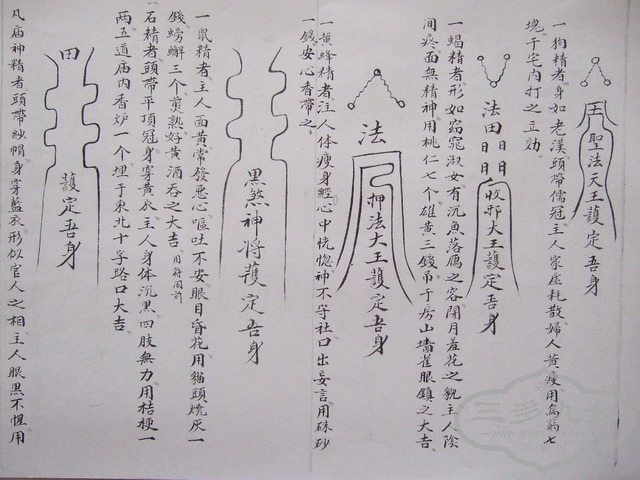 聖法天王護定吾身
一狗精者身如老漢頭帶儒冠主人家虛耗散婦人黃瘦用烏药七
塊于宅內打之立効
法田日日日日收邪大王護定吾身
一蝎精者形如窈窕淑女有沉魚落鴈之容閉月羞花之貌主人陰
间疼面無精神用桃仁七个雄黃三錢吊于房山墻雀眼鎮之大吉
法
押法大王護定吾身
一黃蜂精者注人体瘦身經心中恍惚神不守社口出妄言用硃砂
一錢安心香帶之
黑煞神将護定吾身
一鼠精者主人面黃常發惡心嘔吐不安眼目昏花用貓頭燒灰一
錢螃蠏三个煎熟好黃酒吞之大吉用符同前
石精者頭帶平頂冠身穿黃衣主人身体沉黑四肢無力用桔梗一
两五道庙内香炉一个埋于東北十字路口大吉
田
護定吾身
凡庙神精者頭帶紗帽身穿藍衣形似官人之相主人眼黑不惺用
三多